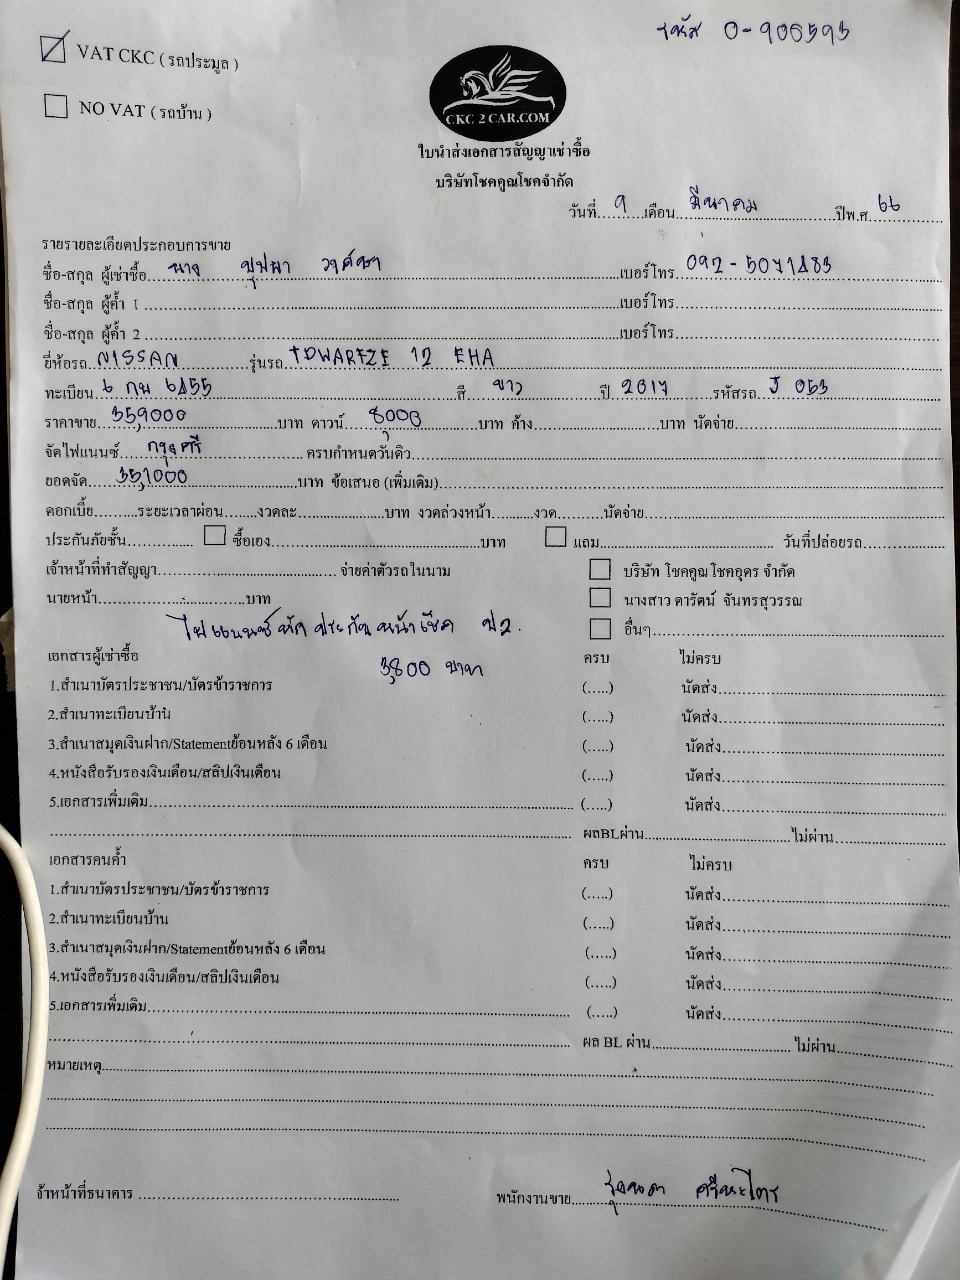 รหัส 0-906593
VAT CKC ( รถประมูล )
NO VAT ( รถบ้าน )
CKC 2 CAR.COM
ใบนำส่งเอกสารสัญญาเช่าซื้อ
บริษัทโชคคูณโชคจำกัด
วันที่.....9.....เดือน.....มีนาคม.....ปีพ.ศ.66
รายรายละเอียดประกอบการขาย
ชื่อ-สกุล ผู้เช่าซื้อ.....นาง บุปผา.....เบอร์โทร.092-5071483
ชื่อ-สกุล ผู้ค้ำ 1 .....เบอร์โทร.....
ชื่อ-สกุล ผู้ค้ำ 2 .....เบอร์โทร.....
ยี่ห้อรถ.NISSAN.....รุ่นรถ.....12 EHA
ทะเบียน.6 กผ 6455.....สี.....ขาว.....ปี.2017.....รหัสรถ.J 053
ราคาขาย.359,000.....บาท ดาวน์.....8,000.....บาท ค้าง.....บาท นัดจ่าย.....
จัดไฟแนนซ์.....กรุงศรี.....ครบกำหนดวันดิว.....
ยอดจัด.....351,000.....บาท ข้อเสนอ (เพิ่มเติม).....
ดอกเบี้ย.....ระยะเวลาผ่อน.....งวดละ.....บาท งวดล่วงหน้า.....งวด.....นัดจ่าย.....
ประกันภัยชั้น..... ซื้อเอง.....บาท แถม..... วันที่ปล่อยรถ.....
เจ้าหน้าที่ทำสัญญา..... จ่ายค่าตัวรถในนาม บริษัท โชคคูณโชคอุดร จำกัด
นายหน้า.....บาท นางสาว ดารัตน์ จันทรสุวรรณ
ไฟแนนซ์หักประกันหน้าเช็ค ป2. อื่นๆ.....
3,800 บาท
เอกสารผู้เช่าซื้อ ครบ ไม่ครบ
1.สำเนาบัตรประชาชน/บัตรข้าราชการ (.....) นัดส่ง.....
2.สำเนาทะเบียนบ้าน (.....) นัดส่ง.....
3.สำเนาสมุดเงินฝาก/Statementย้อนหลัง 6 เดือน (.....) นัดส่ง.....
4.หนังสือรับรองเงินเดือน/สลิปเงินเดือน (.....) นัดส่ง.....
5.เอกสารเพิ่มเติม..... (.....) นัดส่ง.....
..... ผลBLผ่าน.....ไม่ผ่าน.....
เอกสารคนค้ำ ครบ ไม่ครบ
1.สำเนาบัตรประชาชน/บัตรข้าราชการ (.....) นัดส่ง.....
2.สำเนาทะเบียนบ้าน (.....) นัดส่ง.....
3.สำเนาสมุดเงินฝาก/Statementย้อนหลัง 6 เดือน (.....) นัดส่ง.....
4.หนังสือรับรองเงินเดือน/สลิปเงินเดือน (.....) นัดส่ง.....
5.เอกสารเพิ่มเติม..... (.....) นัดส่ง.....
..... ผล BL ผ่าน..... ไม่ผ่าน.....
หมายเหตุ.....
จ้าหน้าที่ธนาคาร ..... พนักงานขาย.....